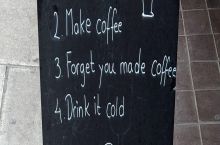 2. Make coffee
3. Forget you made coffee
4. Drink it cold